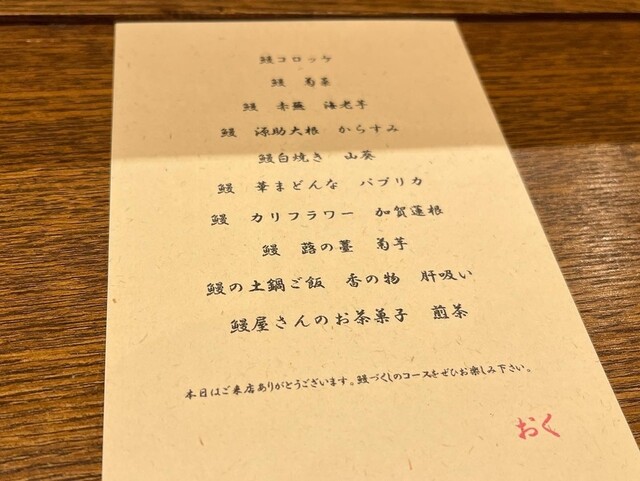 鰻コロッケ
鰻 菊菜
鰻 赤蕪 海老芋
鰻 源助大根 からすみ
鰻白焼き 山葵
鰻 華まどんな パプリカ
鰻 カリフラワー 加賀蓮根
鰻 蕗の薹 菊芋
鰻の土鍋ご飯 香の物 肝吸い
鰻屋さんのお茶菓子 煎茶
本日はご来店ありがとうございます。鰻づくしのコースをぜひお楽しみ下さい。
おく